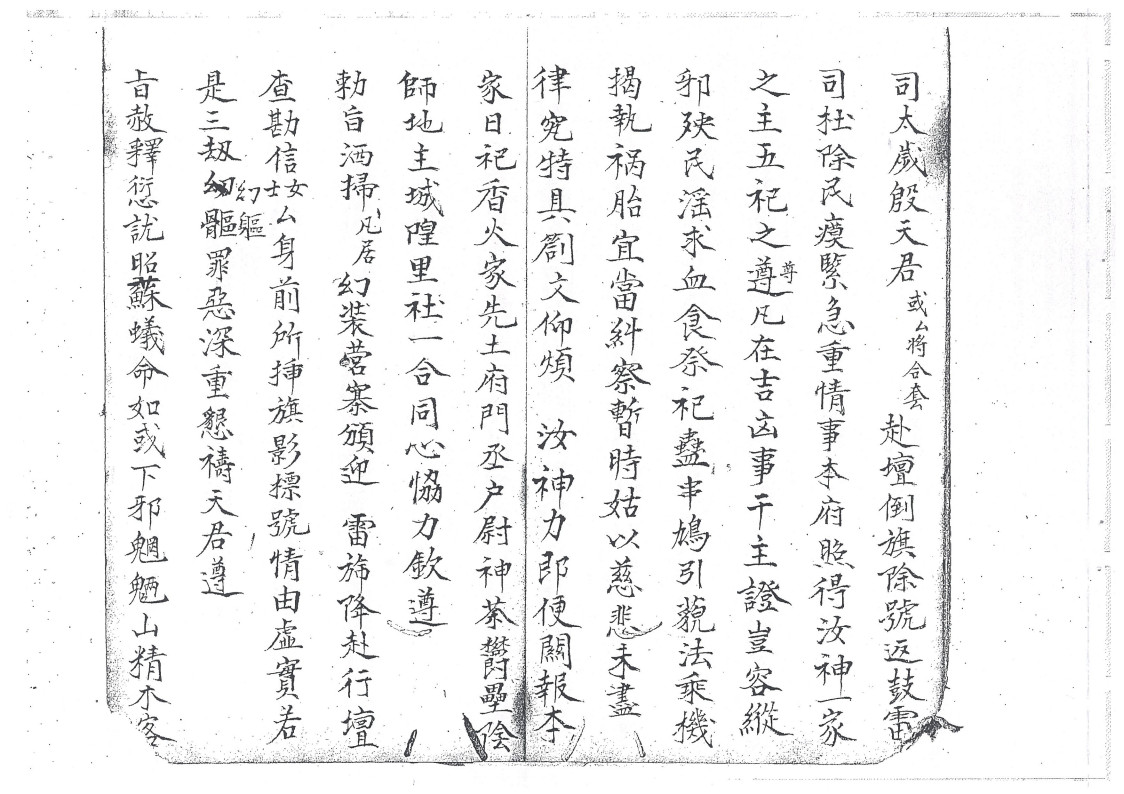 司太歲殷天君或厶將合套赴壇倒旗除號返鼓雷
司扗除民瘼緊急重情事本府照得汝神一家
之主五祀之尊尊凡在吉凶事干主證豈容縱
邪殃民滛求血食祭祀蠱串鳩引藐法乘機
揭執禍胎宜當糾察暫時姑以慈悲未盡
律究特具劄文仰煩 汝神力即便關報本
家日祀香火家先土府門丞户尉神荼欝壘陰
師地主城隍里社一合同心恊力欽遵
勅旨洒掃凡居幻装营寨頒迎 雷斾降赴行壇
查勘信士女厶身前所揷旗影摽號情由虛實若
是三刼幻軀幻軀罪惡深重懇禱天君遵
旨赦釋愆訧昭蘇蟻命如或下邪魍魎山精木客